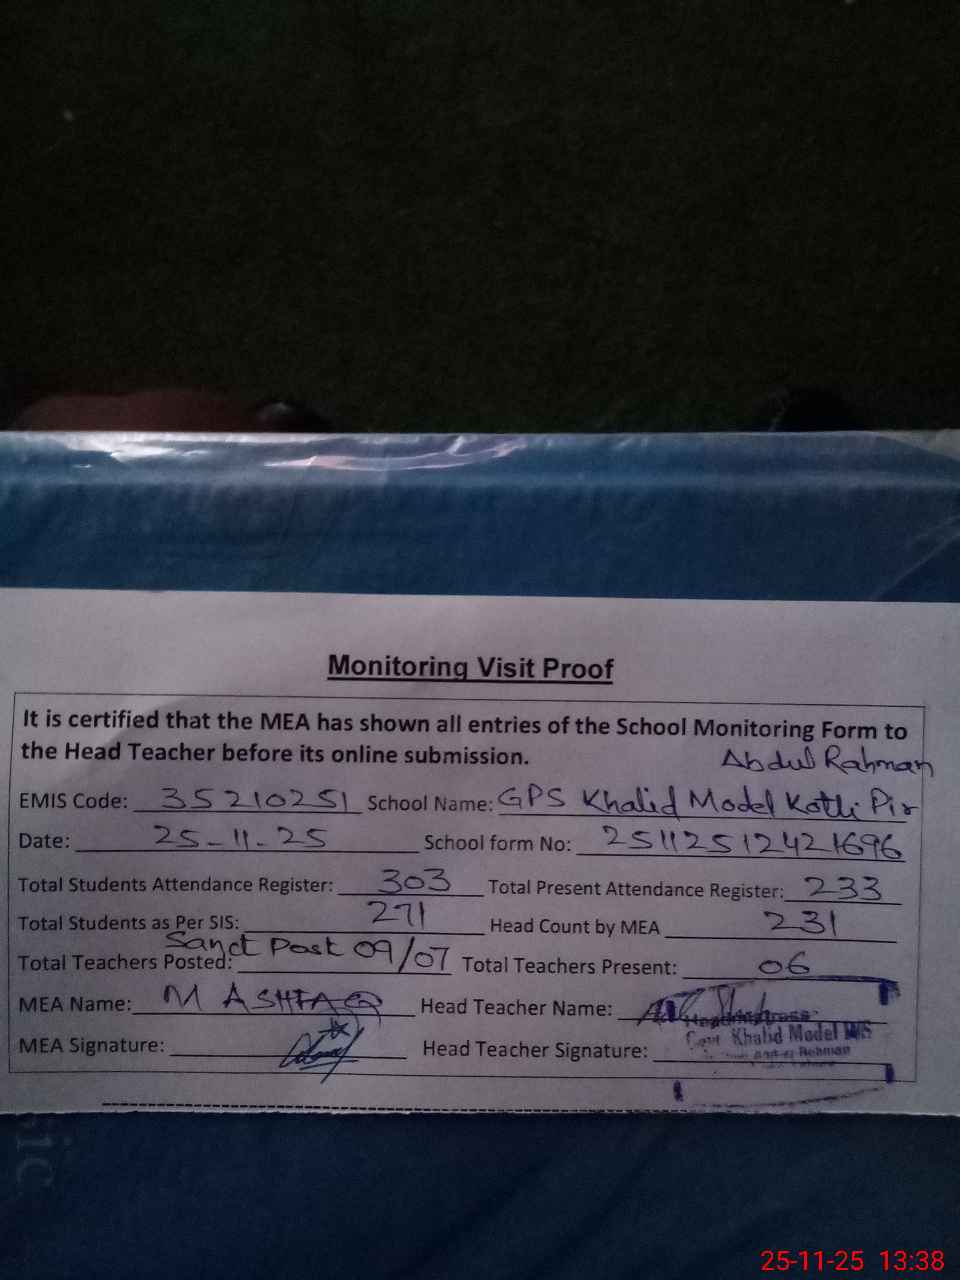 Monitoring Visit Proof
It is certified that the MEA has shown all entries of the School Monitoring Form to
the Head Teacher before its online submission.
Abdul Rahman
EMIS Code: 35210251 School Name: GPS Khalid Model Kotli Pir
Date: 25-11-25 School form No: 25112512421696
Total Students Attendance Register: 303 Total Present Attendance Register: 233
Total Students as Per SIS: 271 Head Count by MEA 231
Sanct Post 09/07
Total Teachers Posted: Total Teachers Present: 06
MEA Name: M ASHFAQ Head Teacher Name:
Headmistress
Govt. Khalid Model
Rehman
MEA Signature: Head Teacher Signature:
25-11-25 13:38